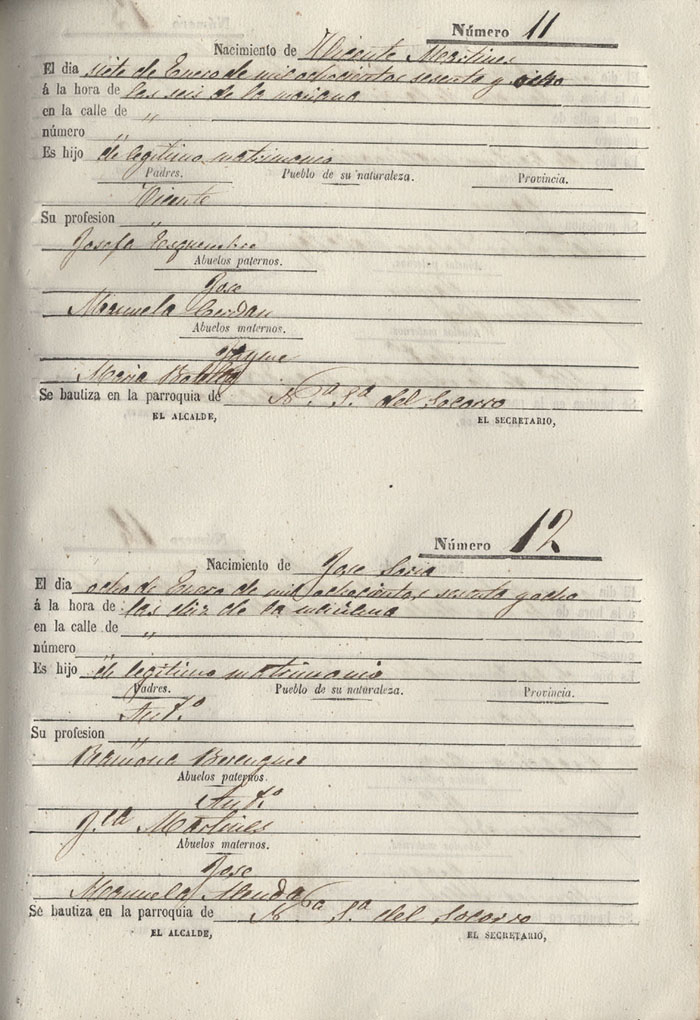 Número 11
Nacimiento de Vicente Martines
El dia siete de Enero de mil ochocientos sesenta y ocho
á la hora de las seis de la mañana
en la calle de "
número "
Es hijo de legitimo matrimonio
Padres. Pueblo de su naturaleza. Provincia.
Vicente
Su profesion "
Josefa Esquembre
Abuelos paternos.
Jose
Manuela Cerdan
Abuelos maternos.
Jayme
Maria Botella
Se bautiza en la parroquia de N.ª S.ª del Socorro
EL ALCALDE, EL SECRETARIO,
Número 12
Nacimiento de Jose Soria
El dia ocho de Enero de mil ochocientos sesenta y ocho
á la hora de las diez de la mañana
en la calle de "
número "
Es hijo de legitimo matrimonio
Padres. Pueblo de su naturaleza. Provincia.
Ant.º
Su profesion "
Ramona Berenguer
Abuelos paternos.
Ant.º
J.fa Martines
Abuelos maternos.
Jose
Manuela Alenda
Se bautiza en la parroquia de N.ª S.ª del Socorro
EL ALCALDE, EL SECRETARIO,